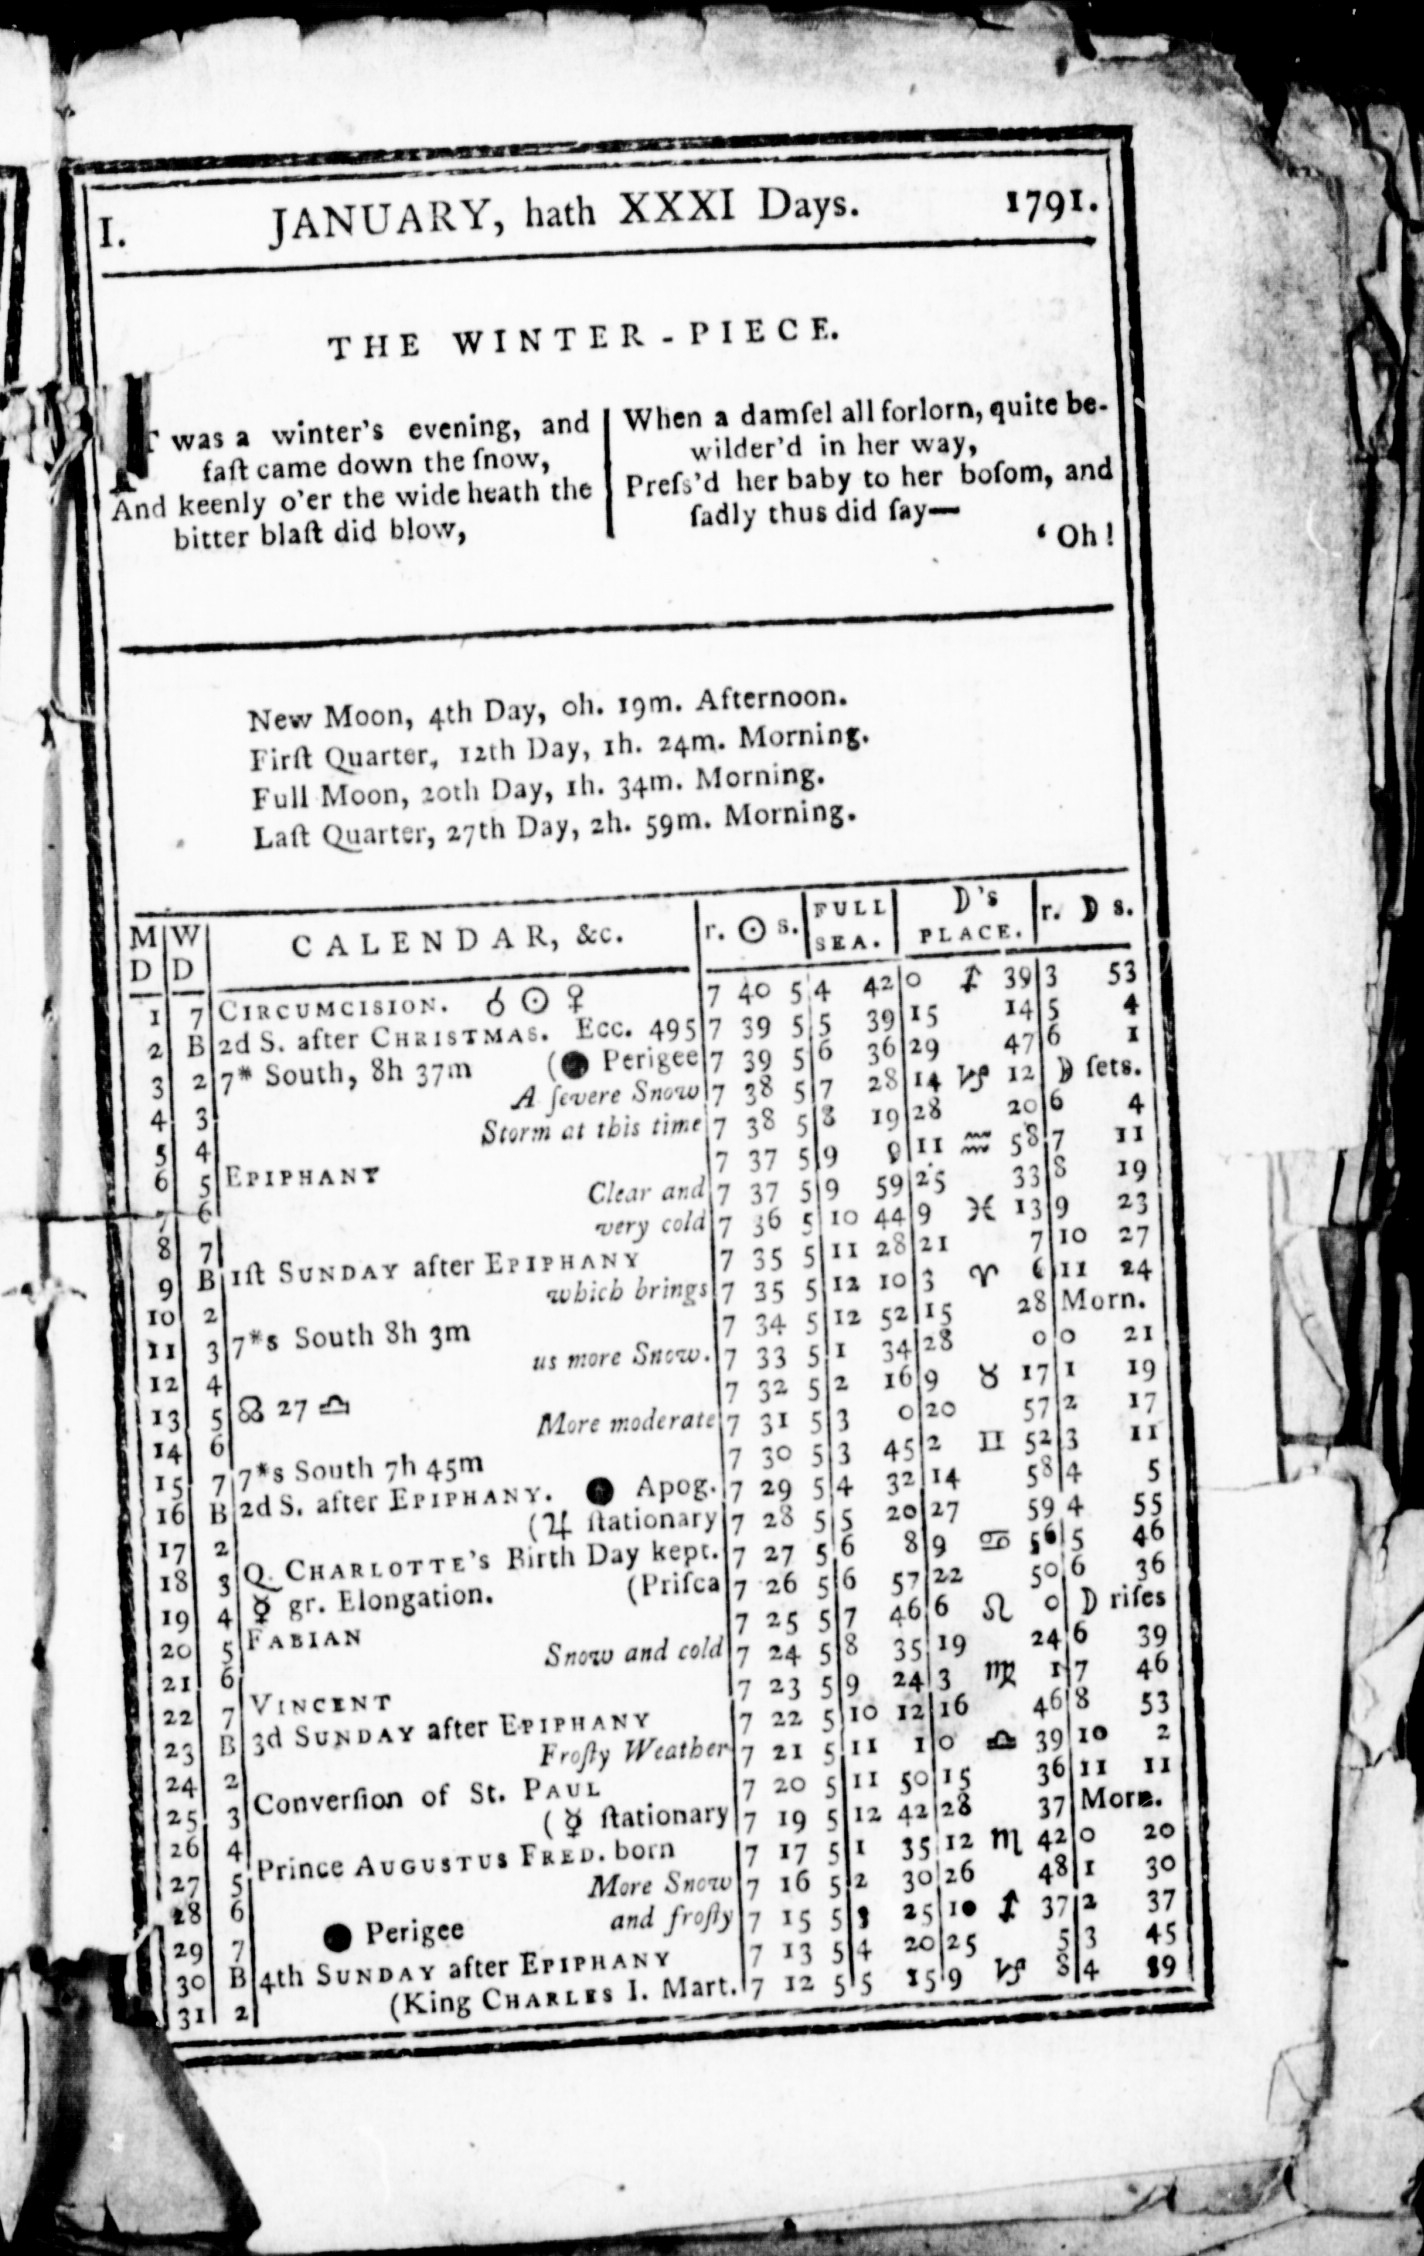 I. JANUARY, hath XXXI Days. 1791.
THE WINTER-PIECE.
IT was a winter's evening, and
faſt came down the ſnow,
And keenly o'er the wide heath the
bitter blaſt did blow,
When a damſel all forlorn, quite be-
wilder'd in her way,
Preſs'd her baby to her boſom, and
ſadly thus did ſay—
‘ Oh!
New Moon, 4th Day, 0h. 19m. Afternoon.
Firſt Quarter, 12th Day, 1h. 24m. Morning.
Full Moon, 20th Day, 1h. 34m. Morning.
Laſt Quarter, 27th Day, 2h. 59m. Morning.
M D | W D | CALENDAR, &c. | r. ☉ s. | FULL SEA. | ☽'s PLACE. | r. ☽ s.
1 7 CIRCUMCISION. ☌ ☉ ♀ 7 40 5 4 42 0 ♐ 39 3 53
2 B 2d S. after CHRISTMAS. Ecc. 495 7 39 5 5 39 15 14 5 4
3 2 7* South, 8h 37m (● Perigee 7 39 5 6 36 29 47 6 1
4 3 A ſevere Snow 7 38 5 7 28 14 ♑ 12 ☽ ſets.
5 4 Storm at this time 7 38 5 8 19 28 20 6 4
6 5 EPIPHANY 7 37 5 9 9 11 ♒ 58 7 11
7 6 Clear and 7 37 5 9 59 25 33 8 19
8 7 very cold 7 36 5 10 44 9 ♓ 13 9 23
9 B 1ſt SUNDAY after EPIPHANY 7 35 5 11 28 21 7 10 27
10 2 which brings 7 35 5 12 10 3 ♈ 6 11 24
11 3 7*s South 8h 3m 7 34 5 12 52 15 28 Morn.
12 4 us more Snow. 7 33 5 1 34 28 0 0 21
13 5 ☊ 27 ♎ 7 32 5 2 16 9 ♉ 17 1 19
14 6 More moderate 7 31 5 3 0 20 57 2 17
15 7 7*s South 7h 45m 7 30 5 3 45 2 ♊ 52 3 11
16 B 2d S. after EPIPHANY. ● Apog. 7 29 5 4 32 14 58 4 5
17 2 (♃ ſtationary 7 28 5 5 20 27 59 4 55
18 3 Q. CHARLOTTE'S Birth Day kept. 7 27 5 6 8 9 ♋ 56 5 46
19 4 ☿ gr. Elongation. (Priſca 7 26 5 6 57 22 50 6 36
20 5 FABIAN 7 25 5 7 46 6 ♌ 0 ☽ riſes
21 6 Snow and cold 7 24 5 8 35 19 24 6 39
22 7 VINCENT 7 23 5 9 24 3 ♍ 1 7 46
23 B 3d SUNDAY after EPIPHANY 7 22 5 10 12 16 46 8 53
24 2 Froſty Weather 7 21 5 11 1 0 ♎ 39 10 2
25 3 Converſion of St. PAUL 7 20 5 11 50 15 36 11 11
26 4 (☿ ſtationary 7 19 5 12 42 28 37 Morn.
27 5 Prince AUGUSTUS FRED. born 7 17 5 1 35 12 ♏ 42 0 20
28 6 More Snow 7 16 5 2 30 26 48 1 30
29 7 ● Perigee and froſty 7 15 5 3 25 10 ♐ 37 2 37
30 B 4th SUNDAY after EPIPHANY 7 13 5 4 20 25 5 3 45
31 2 (King CHARLES I. Mart. 7 12 5 5 15 9 ♑ 8 4